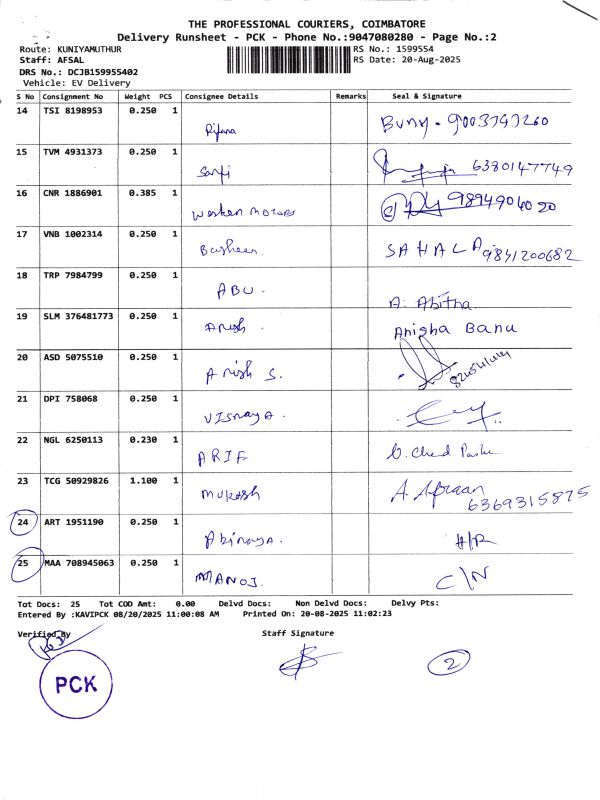 THE PROFESSIONAL COURIERS, COIMBATORE
Delivery Runsheet - PCK - Phone No.:9047080280 - Page No.:2
Route: KUNIYAMUTHUR RS No.: 1599554
Staff: AFSAL RS Date: 20-Aug-2025
DRS No.: DCJB159955402
Vehicle: EV Delivery
S No Consignment No Weight PCS Consignee Details Remarks Seal & Signature
14 TSI 8198953 0.250 1 Rifana
15 TVM 4931373 0.250 1 Sanfi 6380147749
16 CNR 1886901 0.385 1 Western Motors 9894904020
17 VNB 1002314 0.250 1 Basheer SAHALA 9841200682
18 TRP 7984799 0.250 1 ABU. A. Abitha
19 SLM 376481773 0.250 1 Anish. Anisha Banu
20 ASD 5075510 0.250 1 Anish S.
21 DPI 758068 0.250 1 VISNAYA.
22 NGL 6250113 0.230 1 ARIF
23 TCG 50929826 1.100 1 Mukesh A. Afraan
6369315875
24 ART 1951190 0.250 1 Abinaya. H/R
25 MAA 708945063 0.250 1 MANOJ. C\N
Tot Docs: 25 Tot COD Amt: 0.00 Delvd Docs: Non Delvd Docs: Delvy Pts:
Entered By :KAVIPCK 08/20/2025 11:00:08 AM Printed On: 20-08-2025 11:02:23
Verified By Staff Signature
PCK
2